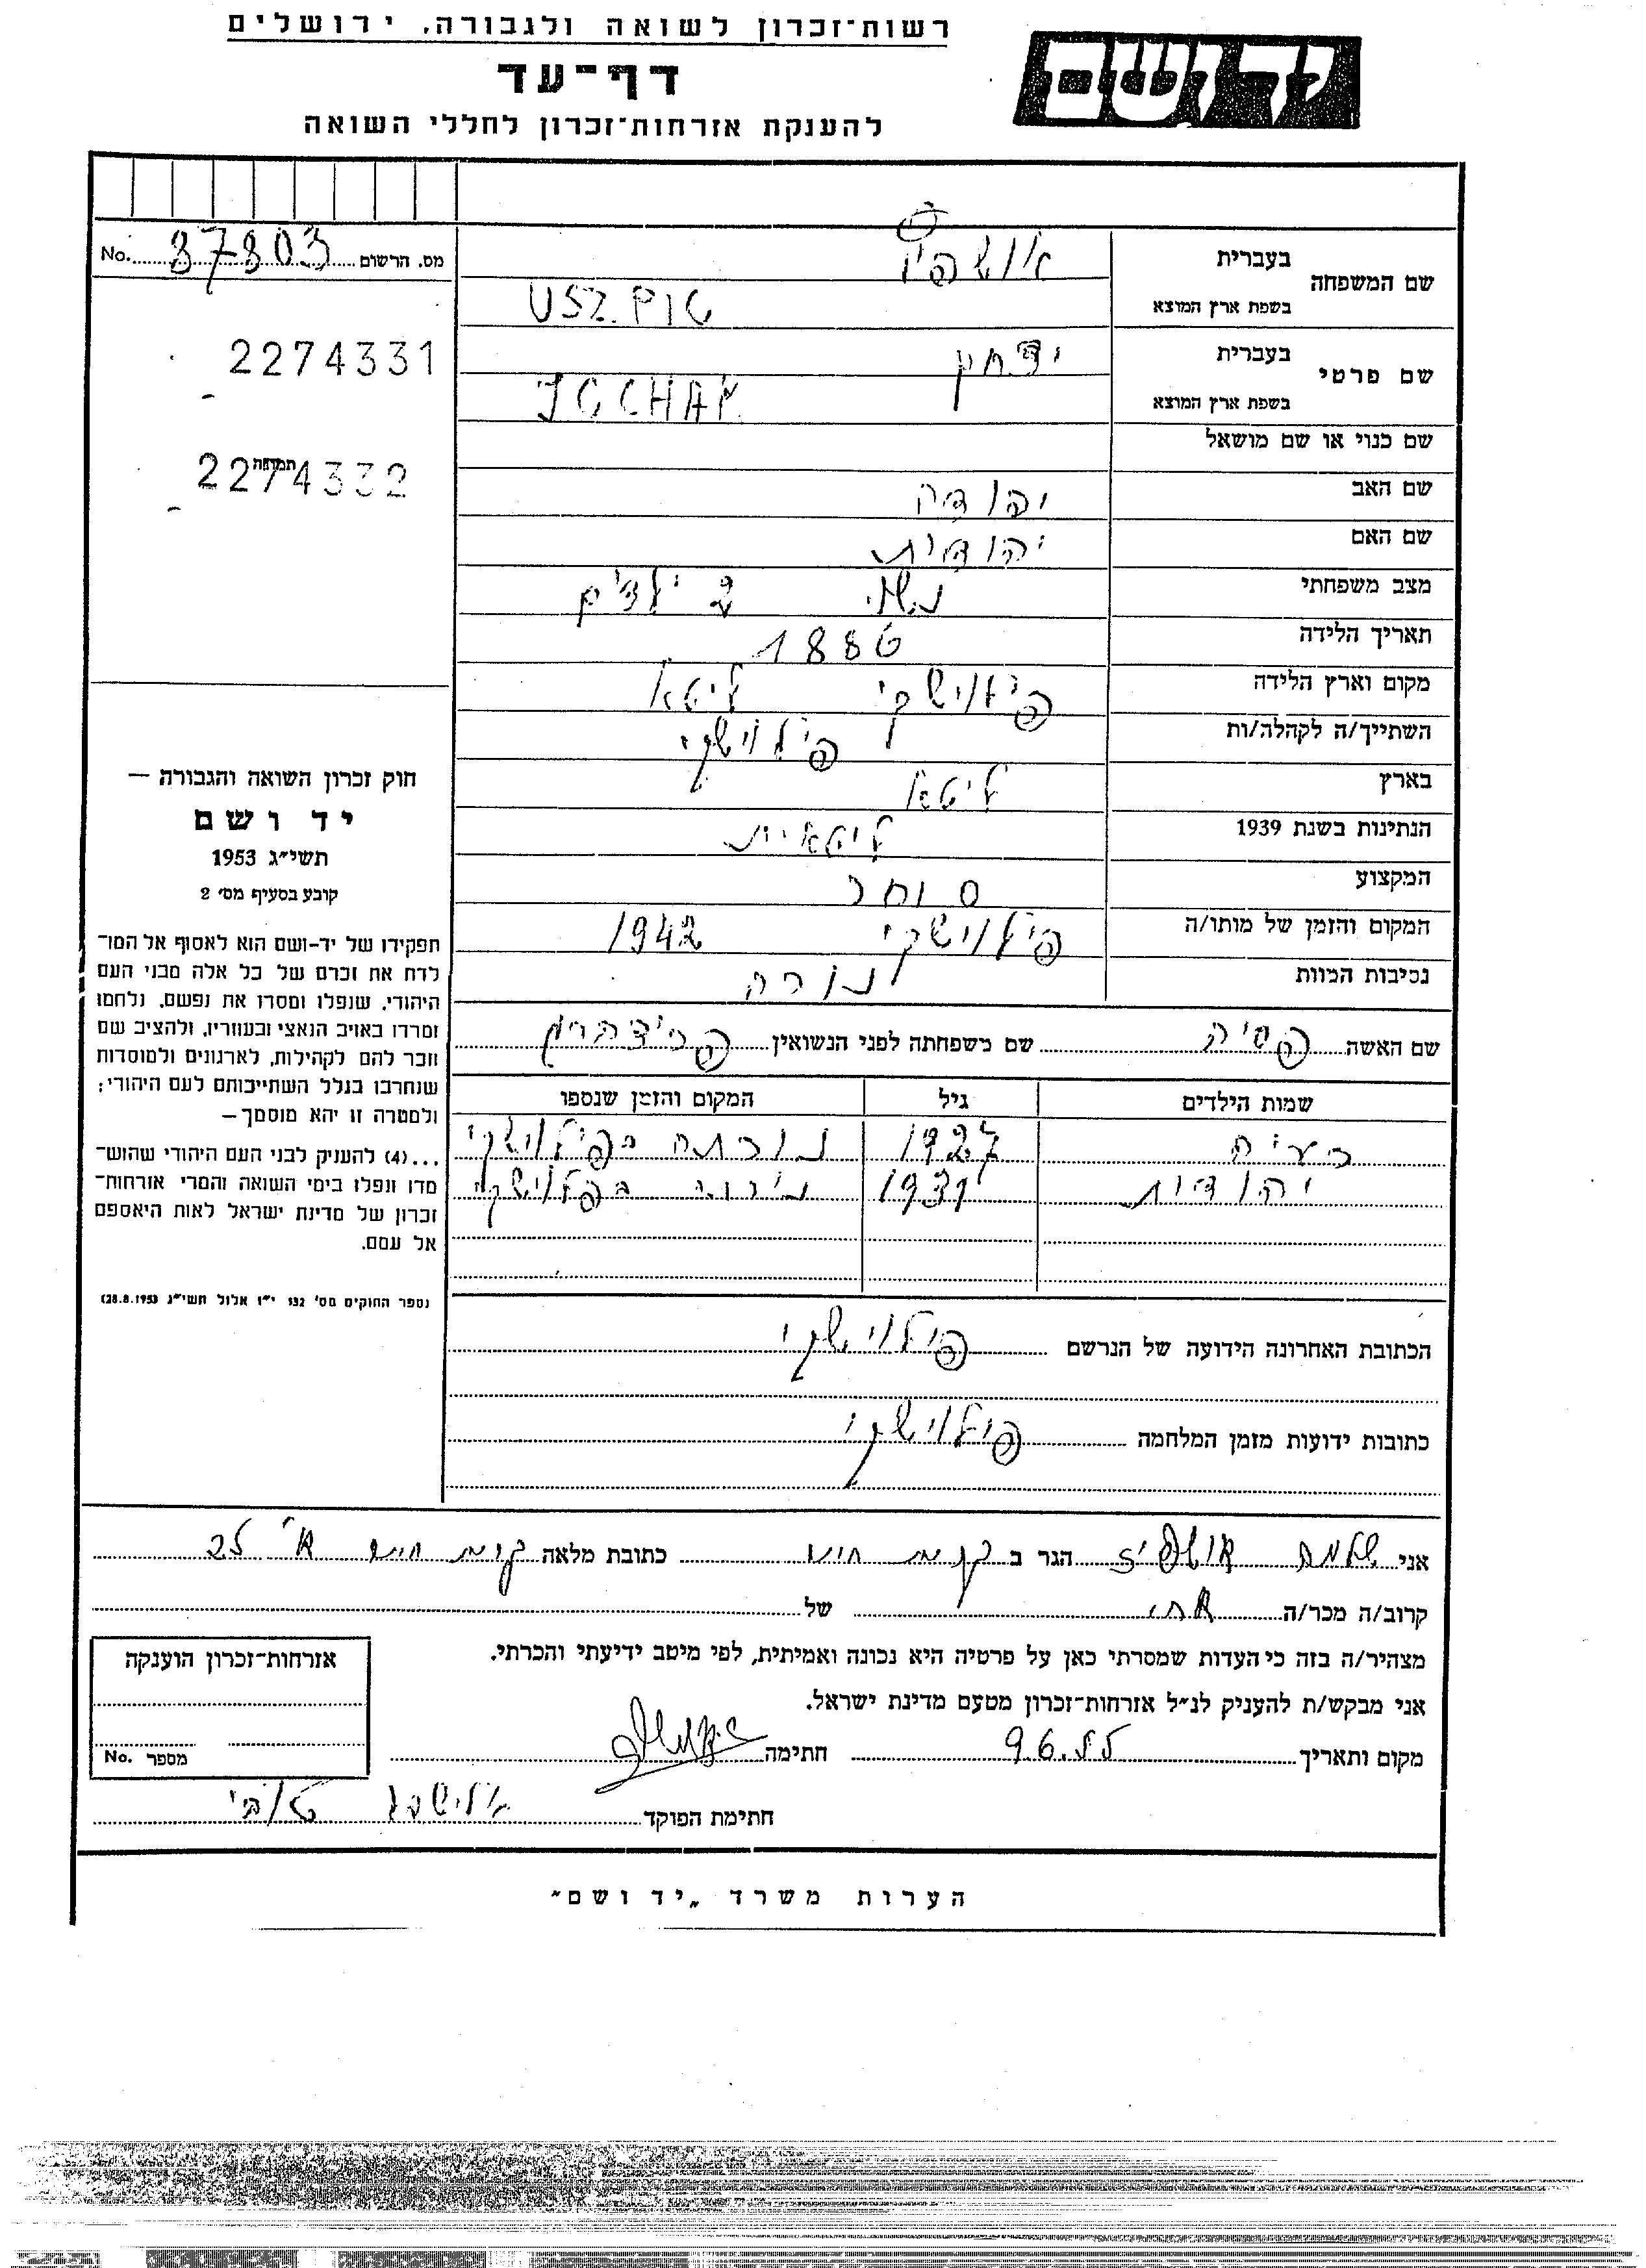 רשות־זכרון לשואה ולגבורה, ירושלים
יד ושם
דף־עד
להענקת אזרחות־זכרון לחללי השואה
מס. הרשום 87803 No.
שם המשפחה
בעברית אושפיז
בשפת ארץ המוצא USZPIG
2274331
שם פרטי
בעברית יצחק
בשפת ארץ המוצא
שם כנוי או שם מושאל
תמונה
2274332
שם האב יהודה
שם האם יהודית
מצב משפחתי נשוי 2 ילדים
תאריך הלידה 1886
מקום וארץ הלידה פילוישקי ליטא
השתייך/ה לקהלה/ות פילוישקי
בארץ ליטא
הנתינות בשנת 1939 ליטאית
המקצוע סוחר
המקום והזמן של מותו/ה פילוישקי 1942
נסיבות המוות נורה
שם האשה פסיה שם משפחתה לפני הנשואין פרידהיים
שמות הילדים גיל המקום והזמן שנספו
1927 נורתה בפילוישקי
יהודית 1931 בפילוישקי
הכתובת האחרונה הידועה של הנרשם פילוישקי
כתובות ידועות מזמן המלחמה פילוישקי
חוק זכרון השואה והגבורה —
יד ושם
תשי״ג 1953
קובע בסעיף מס׳ 2
תפקידו של יד-ושם הוא לאסוף אל המו־
לדת את זכרם של כל אלה מבני העם
היהודי, שנפלו ומסרו את נפשם, נלחמו
ומרדו באויב הנאצי ובעוזריו, ולהציב שם
וזכר להם לקהילות, לארגונים ולמוסדות
שנחרבו בגלל השתייכותם לעם היהודי;
ולמטרה זו יהא מוסמך—
...(4) להעניק לבני העם היהודי שהוש־
מדו ונפלו בימי השואה והמרי אזרחות־
זכרון של מדינת ישראל לאות היאספם
אל עמם.
(ספר החוקים מס׳ 132 י״ז אלול תשי״ג 28.8.1953)
אני שלמה אושפיז הגר ב קרית חיים כתובת מלאה קרית חיים א׳ 25
קרוב/ה מכר/ה אחי של
מצהיר/ה בזה כי העדות שמסרתי כאן על פרטיה היא נכונה ואמיתית, לפי מיטב ידיעתי והכרתי.
אני מבקש/ת להעניק לנ״ל אזרחות־זכרון מטעם מדינת ישראל.
מקום ותאריך 9.6.55 חתימה
אזרחות־זכרון הוענקה
מספר No.
חתימת הפוקד אלישבע טובי
הערות משרד „יד ושם״